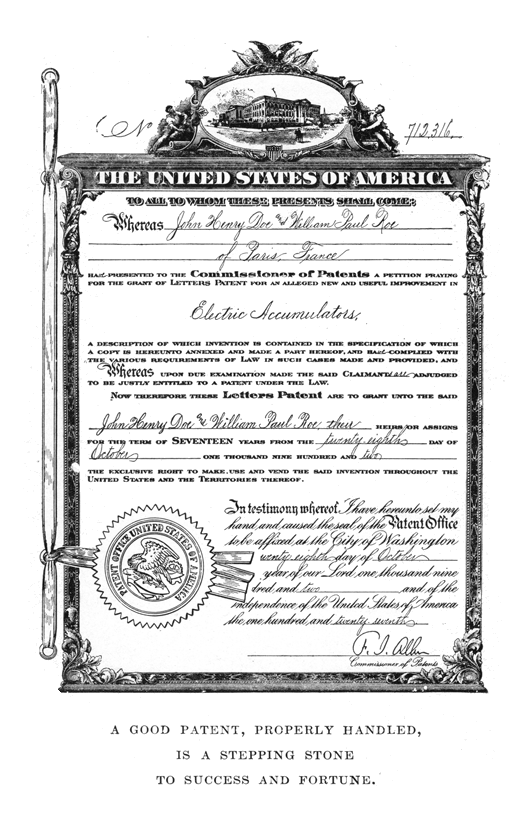 No 712,316.
THE UNITED STATES OF AMERICA
TO ALL TO WHOM THESE PRESENTS SHALL COME:
Whereas John Henry Doe & William Paul Roe
of Paris, France
HAVE PRESENTED TO THE Commissioner of Patents A PETITION PRAYING
FOR THE GRANT OF LETTERS PATENT FOR AN ALLEGED NEW AND USEFUL IMPROVEMENT IN
Electric Accumulators,
A DESCRIPTION OF WHICH INVENTION IS CONTAINED IN THE SPECIFICATION OF WHICH
A COPY IS HEREUNTO ANNEXED AND MADE A PART HEREOF, AND HAVE COMPLIED WITH
THE VARIOUS REQUIREMENTS OF LAW IN SUCH CASES MADE AND PROVIDED, AND
Whereas UPON DUE EXAMINATION MADE THE SAID CLAIMANTS are ADJUDGED
TO BE JUSTLY ENTITLED TO A PATENT UNDER THE LAW.
NOW THEREFORE THESE Letters Patent ARE TO GRANT UNTO THE SAID
John Henry Doe & William Paul Roe, their HEIRS OR ASSIGNS
FOR THE TERM OF SEVENTEEN YEARS FROM THE twenty eighth DAY OF
October ONE THOUSAND NINE HUNDRED AND two
THE EXCLUSIVE RIGHT TO MAKE, USE AND VEND THE SAID INVENTION THROUGHOUT THE
UNITED STATES AND THE TERRITORIES THEREOF.
In testimony whereof, I have hereunto set my
hand and caused the seal of the Patent Office
to be affixed at the City of Washington
wenty eighth day of October
year of our Lord one thousand nine
dred and two and of the
independence of the United States of America
the one hundred and twenty seventh
PATENT OFFICE UNITED STATES OF AMERICA
F. I. Allen
Commissioner of Patents
A GOOD PATENT, PROPERLY HANDLED,
IS A STEPPING STONE
TO SUCCESS AND FORTUNE.